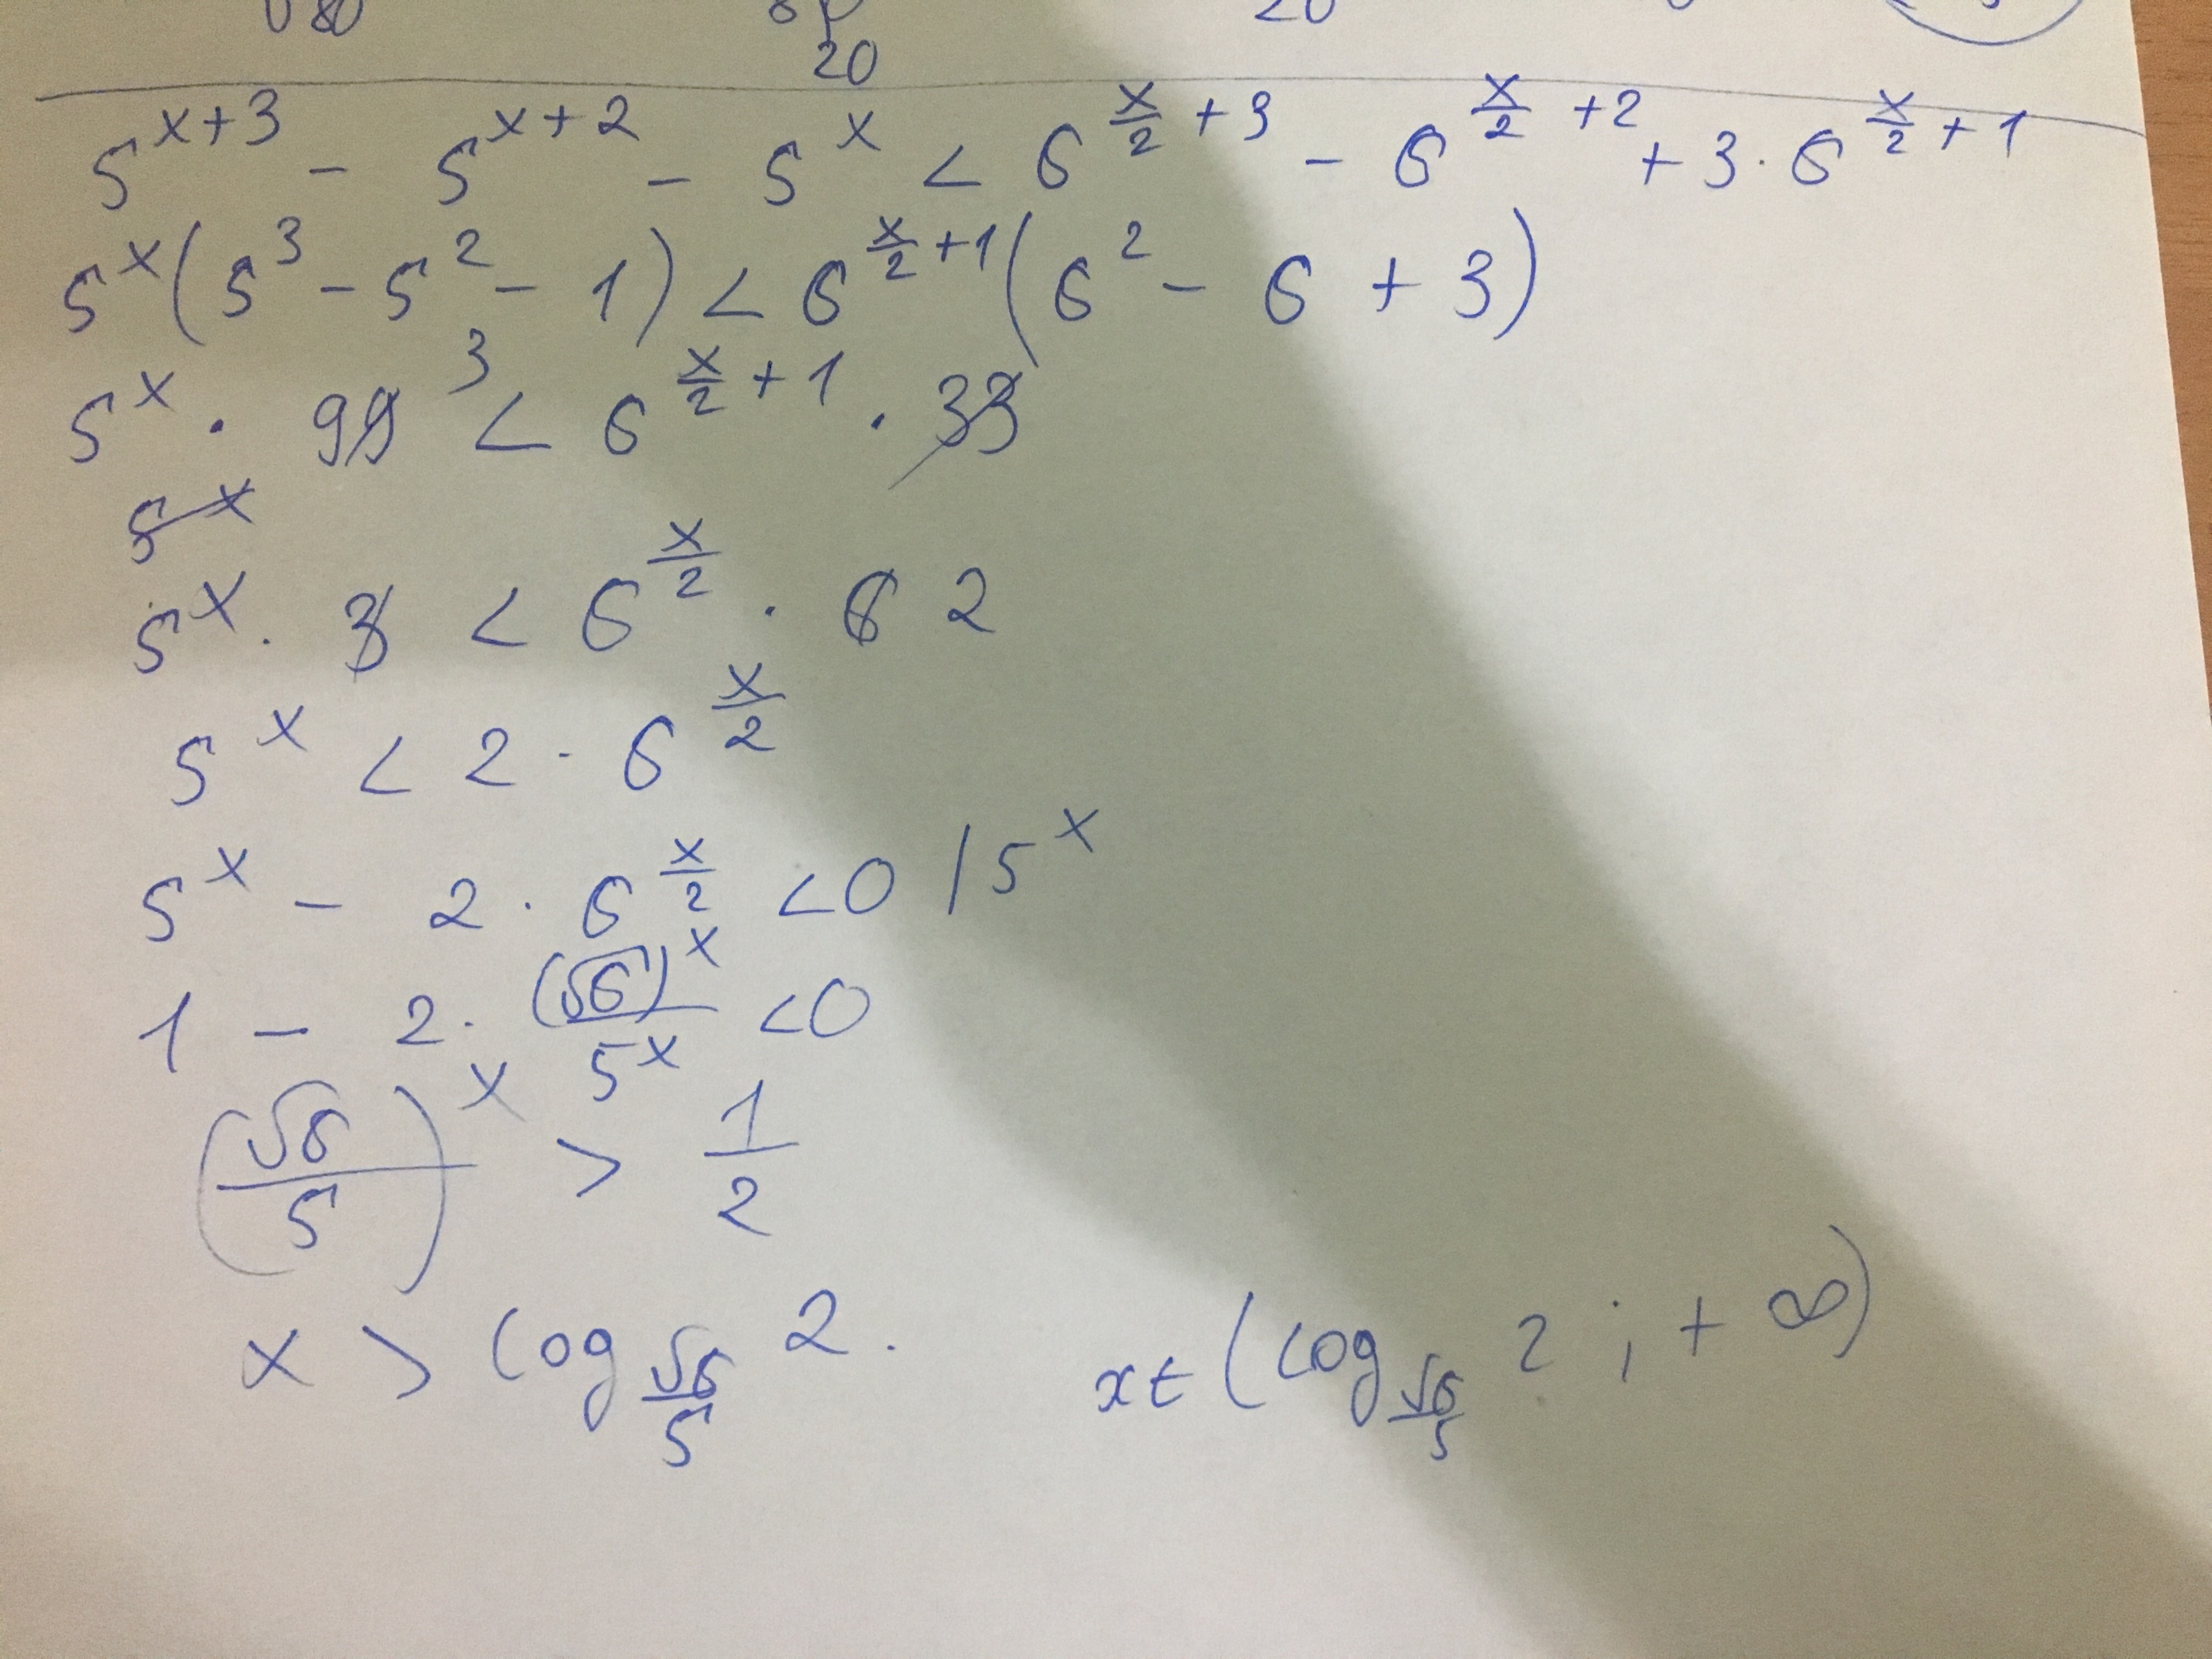 20
5^{x+3} - 5^{x+2} - 5^x < 6^{\frac{x}{2}+3} - 6^{\frac{x}{2}+2} + 3 · 6^{\frac{x}{2}+1}
5^x (5^3 - 5^2 - 1) < 6^{\frac{x}{2}+1} (6^2 - 6 + 3)
5^x · 99 3 < 6^{\frac{x}{2}+1} · 33
5^x
5^x · 3 < 6^{\frac{x}{2}} · 6 2
5^x < 2 · 6^{\frac{x}{2}}
5^x - 2 · 6^{\frac{x}{2}} < 0 / 5^x
1 - 2 · \frac{(√6)^x}{5^x} < 0
(\frac{√6}{5})^x > \frac{1}{2}
x > log_{\frac{√6}{5}} 2. x ∈ (log_{\frac{√6}{5}} 2 ; + ∞)